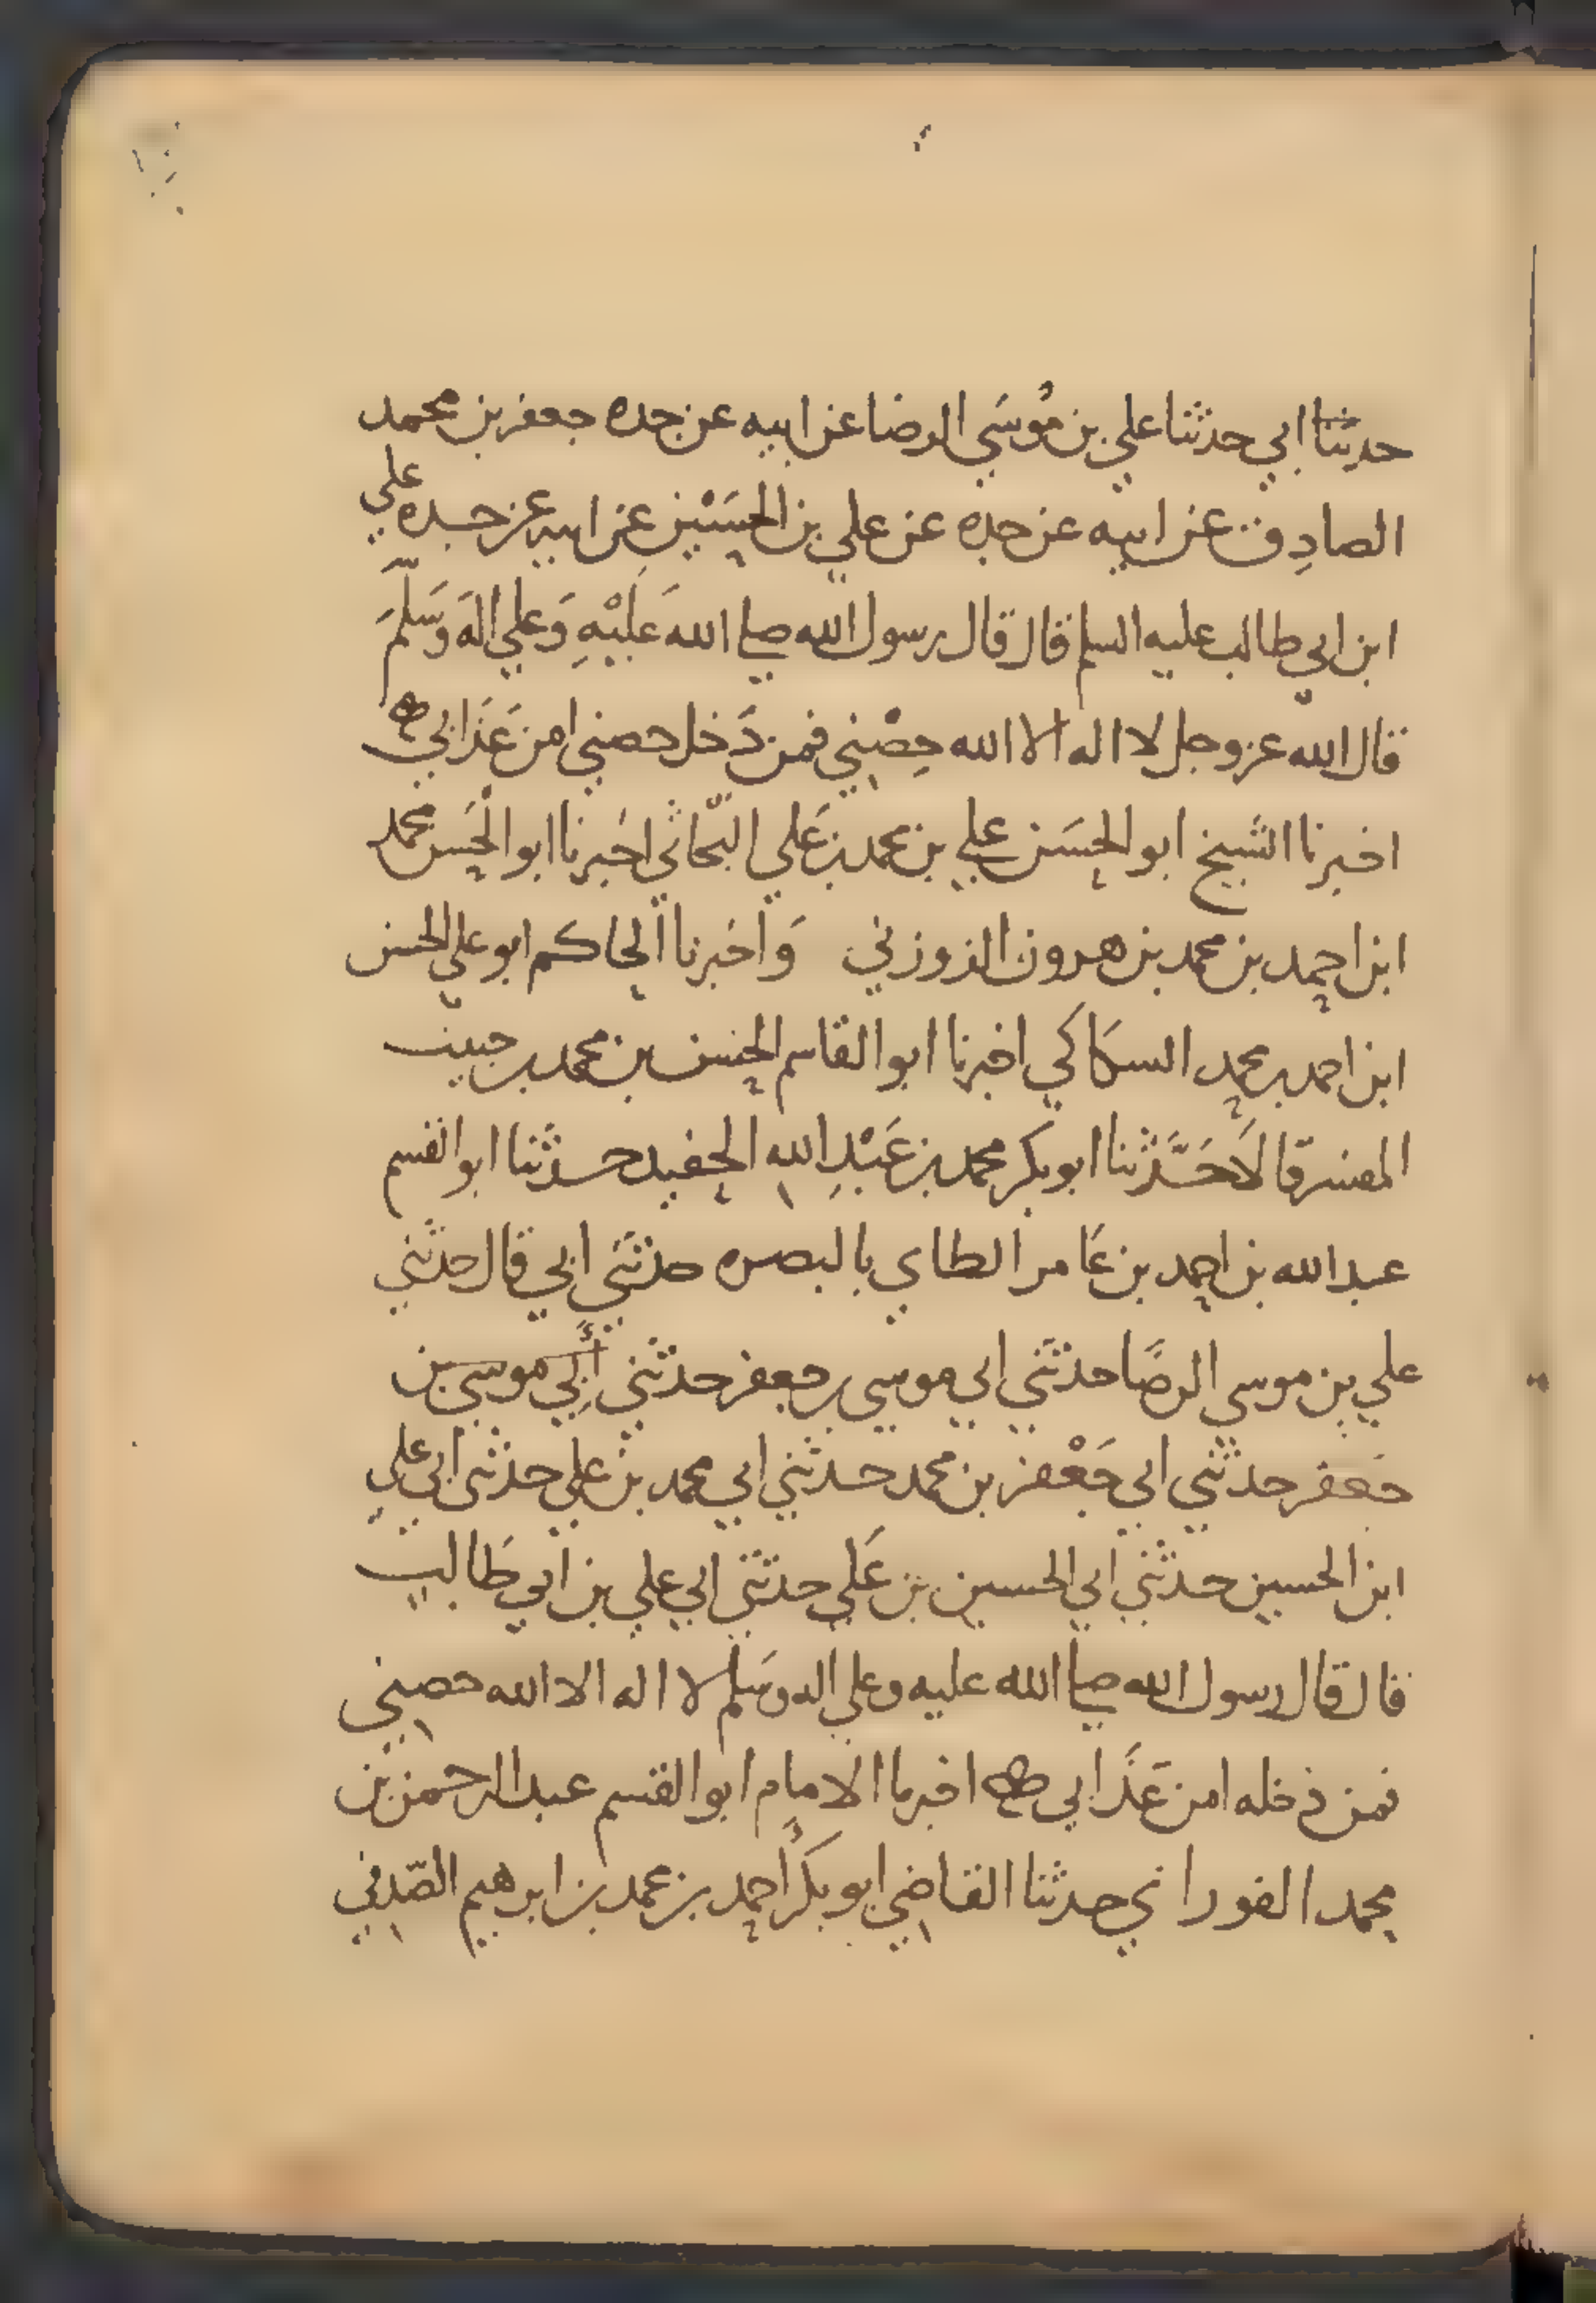 حدثنا ابي حدثنا علي بن مُوسَي الرضا عن ابيه عن جده جعفر بن محمد
الصادِق عن ابيه عن جده عن علي بن الحسَيْن عن ابيه عن جده علي
ابن ابي طالب عليه السلم قال قال رسول الله صلي الله عَلَيْهِ وَعلي اله وَسَلَّمَ
قال الله عز وجل لا اله الا الله حِصْني فمن دَخل حصني امن عَذَابي
اخبرنا الشيخ ابو الحسَن علي بن محمد بن عَلي البّحاثي اخبرنا ابو الحَسن محمد
ابن احمد بن محمد بن هرون الزوزني وَاخبرنا الحاكم ابو علي الحسن
ابن احمد بن محمد السكاكي اخبرنا ابو القاسم الحسن بن محمد بن حبيب
المفسر قالَا حَدَّثنا ابو بكر محمد بن عَبْدِ اللهِ الحفيد حدثنا ابو القسم
عبد الله بن احمد بن عَامر الطاي بالبصره حدثني ابي قال حدثني
علي بن موسي الرضَا حدثني ابي موسي بن جعفر حدثني أبِي موسي بن
جَعفر حدثني ابي جَعْفر بن محمد حدثني ابي محمد بن علي حدثني ابي علي
ابن الحسين حدثني ابي الحسين بن عَلي حدثني ابي علي بن ابي طَالب
قال قال رسول الله صلي الله عليه وعلي اله وسَلم لا اله الا الله حصني
فمن دخله امن عَذَابي اخبرنا الامام ابو القسم عبد الرحمن بن
محمد الفوراني حدثنا القاضي ابو بكر احمد بن محمد بن ابرهيم الصّدفي